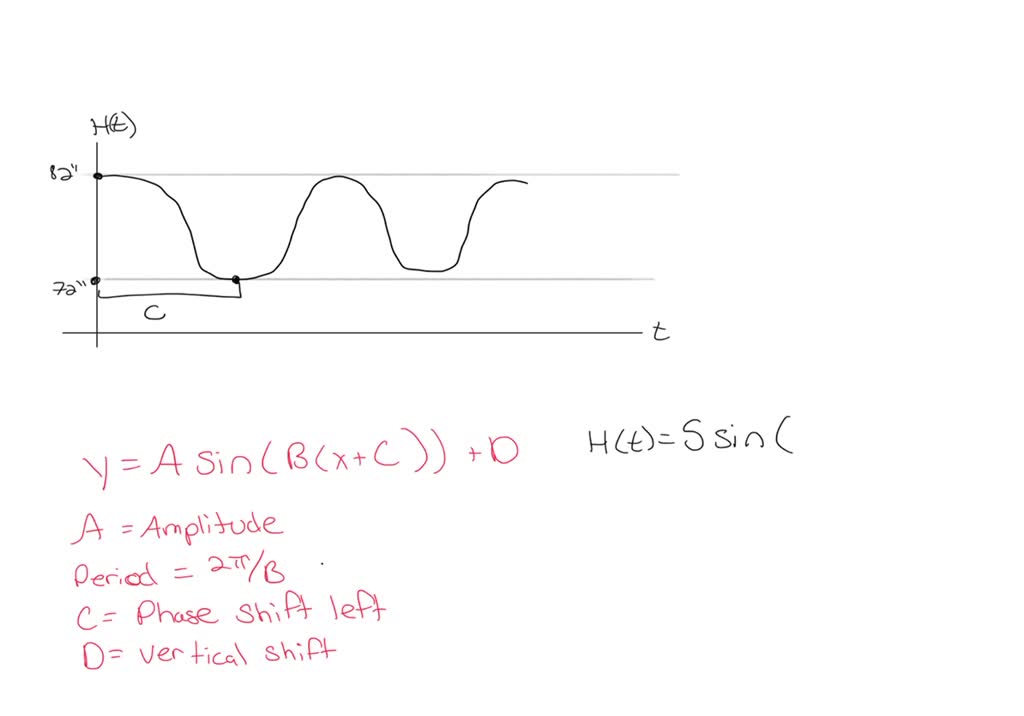 H(t)
82"
72"
C
t
y = A sin(B(x+C)) + D
H(t)=5 sin(
A = Amplitude
Period = 2π/B
C= Phase shift left
D= vertical shift